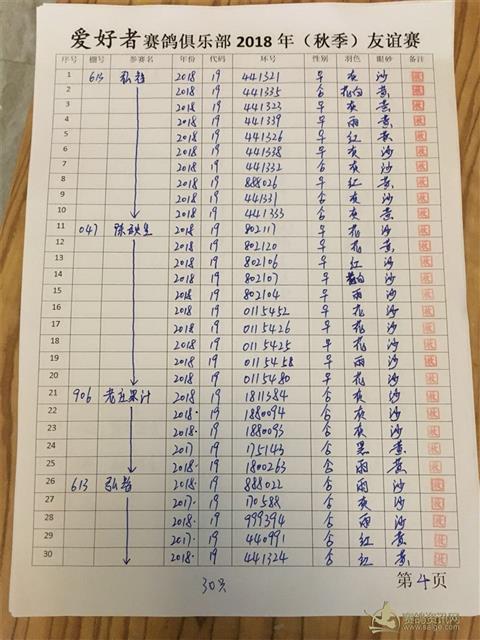 爱好者赛鸽俱乐部2018年（秋季）友谊赛
序号 棚号 参赛名 年份 代码 环号 性别 羽色 眼砂 备注
1 613 弘哲 2018 19 441321 早 灰 沙
2 2018 19 441335 合 花白 黄
3 2018 19 441323 早 灰 黄
4 2018 19 441339 早 雨 黄
5 2018 19 441326 早 红 黄
6 2018 19 441338 早 灰 沙
7 2018 19 441332 合 灰 沙
8 2018 19 888026 早 红 黄
9 2018 19 441331 合 灰 沙
10 2018 19 441333 合 灰 黄
11 047 陈秋生 2018 19 802117 早 花 沙
12 2018 19 802120 早 花 黄
13 2018 19 802106 早 红 沙
14 2018 19 802107 早 沙
15 2018 19 802104 早 雨 沙
16 2018 19 0115452 早 花 沙
17 2018 19 0115426 早 花 沙
18 2018 19 0115425 早 花 沙
19 2018 19 0115458 早 雨 沙
20 2018 19 0115480 早 花 沙
21 906 老庄累计 2018 19 1811384 合 灰 沙
22 2018· 19 1880094 合 灰 沙
23 2018 19 1880093 合 灰 沙
24 2017 19 175143 合 黑 黄
25 2018· 19 1800263 合 雨 黄
26 613 弘哲 2018· 19 888022 合 雨 沙
27 2017· 19 170588 合 灰 沙
28 2018· 19 999394 合 雨 沙
29 2017· 19 440991 合 红 黄
30 2018· 19 441324 合 红 黄
30只
第4页
赛鸽资讯网
www.saige.com